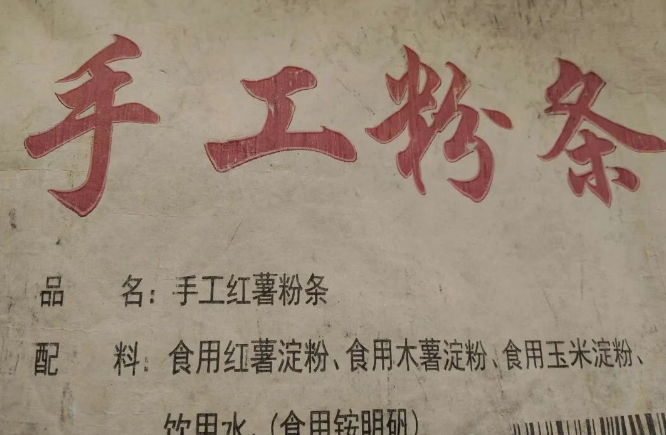 手工粉条
品 名：手工红薯粉条
配 料：食用红薯淀粉、食用木薯淀粉、食用玉米淀粉、
饮用水、(食用铵明矾)